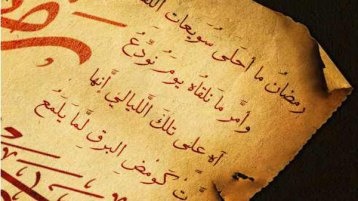 رمضانُ ما أحلى سُويعات
وأمَرَّ ما نلقاه يومَ نُودِّعُ
آهٍ على تلكَ اللَّيالي إنَّها
كَومضِ البرقِ لمَّا يَلمَعُ